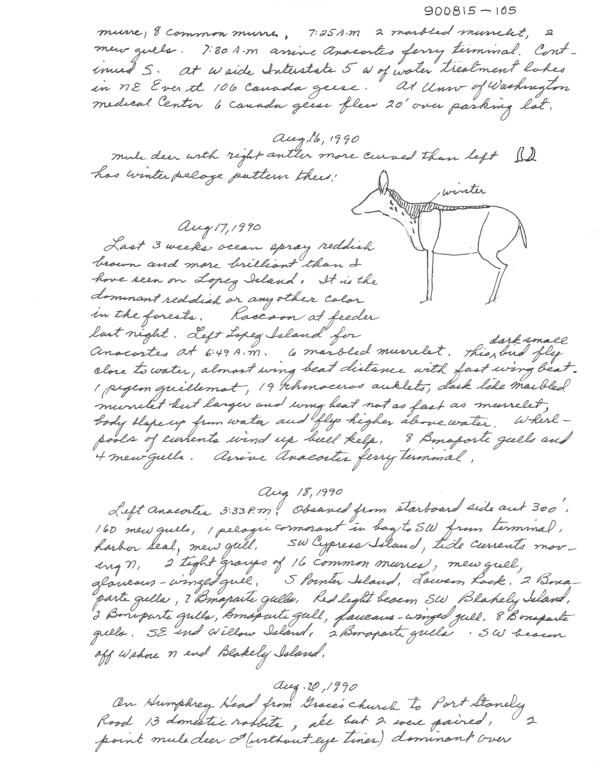 900815-105
murre, 8 common murre, 7:25 A.M 2 marbled murrelet, 2
mew gulls. 7:30 A.M arrive Anacortes ferry terminal. Cont-
inued S. At W side Interstate 5 W of water treatment lakes
in NE Everett 106 Canada geese. At Univ of Washington
medical Center 6 Canada geese flew 20' over parking lot.
Aug. 16, 1990
mule deer with right antler more curved than left
has winter pelage pattern thus:
winter
Aug 17, 1990
Last 3 weeks ocean spray reddish
brown and more brilliant than I
have seen on Lopez Island. It is the
dominant reddish or any other color
in the forests. Raccoon at feeder
last night. Left Lopez Island for
Anacortes at 6:49 A.M. 6 marbled murrelet. This dark small bird fly
close to water, almost wing beat distance with fast wing beat.
1 pigeon guillemot, 19 rhinoceros auklets, dark like marbled
murrelet but larger and wing beat not as fast as murrelet,
body slope up from water and flys higher above water. Whirl-
pools of currents wind up bull kelp. 8 Bonaparte gulls and
4 mew gulls. Arrive Anacortes ferry terminal.
Aug 18, 1990
Left Anacortes 3:33 P.M. Observed from starboard side out 300'.
160 mew gulls, 1 pelagic cormorant in bay to SW from terminal.
harbor seal, mew gull. SW Cypress Island, tide currents mov-
ing N. 2 tight groups of 16 common murres, mew gull,
glaucous-winged gull. S Pointer Island, Lawson Rock. 2 Bona-
parte gulls, 7 Bonaparte gulls. Red light beacon SW Blakely Island,
2 Bonaparte gulls, Bonaparte gull, glaucous-winged gull. 8 Bonaparte
gulls. SE end Willow Island, 2 Bonaparte gulls. SW beacon
off W shore N end Blakely Island.
Aug. 20, 1990
On Humphrey Head from Grace's church to Port Stanely
Road 13 domestic rabbits, all but 2 were paired. 2
point mule deer ♂ (without eye tines) dominant over